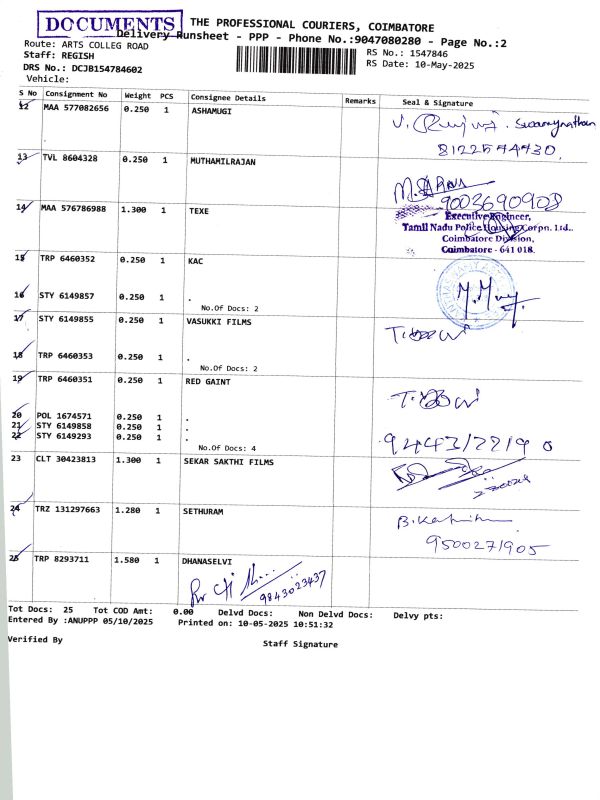 DOCUMENTS
THE PROFESSIONAL COURIERS, COIMBATORE
Delivery Runsheet - PPP - Phone No.:9047080280 - Page No.:2
Route: ARTS COLLEG ROAD
RS No.: 1547846
Staff: REGISH
RS Date: 10-May-2025
DRS No.: DCJB154784602
Vehicle:
S No Consignment No Weight PCS Consignee Details Remarks Seal & Signature
12 MAA 577082656 0.250 1 ASHAMUGI
8122544430.
13 TVL 8604328 0.250 1 MUTHAMILRAJAN
9003690908
14 MAA 576786988 1.300 1 TEXE
Executive Engineer,
Tamil Nadu Police Housing Corpn. Ltd.,
Coimbatore Division,
Coimbatore - 641 018.
15 TRP 6460352 0.250 1 KAC
16 STY 6149857 0.250 1 .
No.Of Docs: 2
17 STY 6149855 0.250 1 VASUKKI FILMS
18 TRP 6460353 0.250 1 .
No.Of Docs: 2
19 TRP 6460351 0.250 1 RED GAINT
20 POL 1674571 0.250 1 .
21 STY 6149858 0.250 1 .
22 STY 6149293 0.250 1 .
No.Of Docs: 4
9443122190
23 CLT 30423813 1.300 1 SEKAR SAKTHI FILMS
24 TRZ 131297663 1.280 1 SETHURAM
9500271905
25 TRP 8293711 1.580 1 DHANASELVI
9843023437
Tot Docs: 25 Tot COD Amt: 0.00 Delvd Docs: Non Delvd Docs: Delvy pts:
Entered By :ANUPPP 05/10/2025 Printed on: 10-05-2025 10:51:32
Verified By Staff Signature